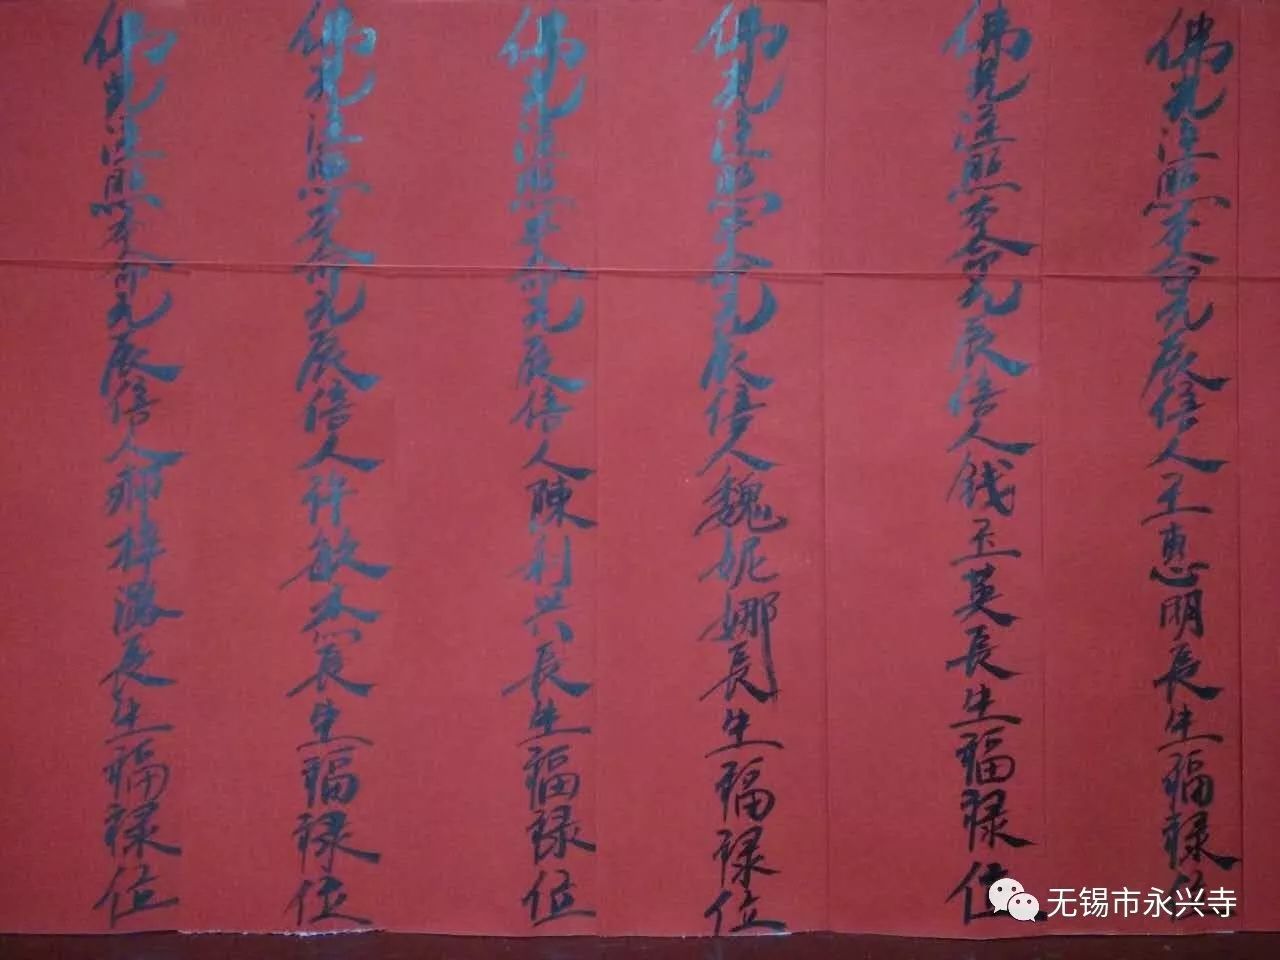 佛光注照本命元辰信人王惠明長生福禄位
佛光注照本命元辰信人钱玉英長生福禄位
佛光注照本命元辰信人魏妮娜長生福禄位
佛光注照本命元辰信人陳利兴長生福禄位
佛光注照本命元辰信人许敏杰長生福禄位
佛光注照本命元辰信人師梓潞長生福禄位
无锡市永兴寺